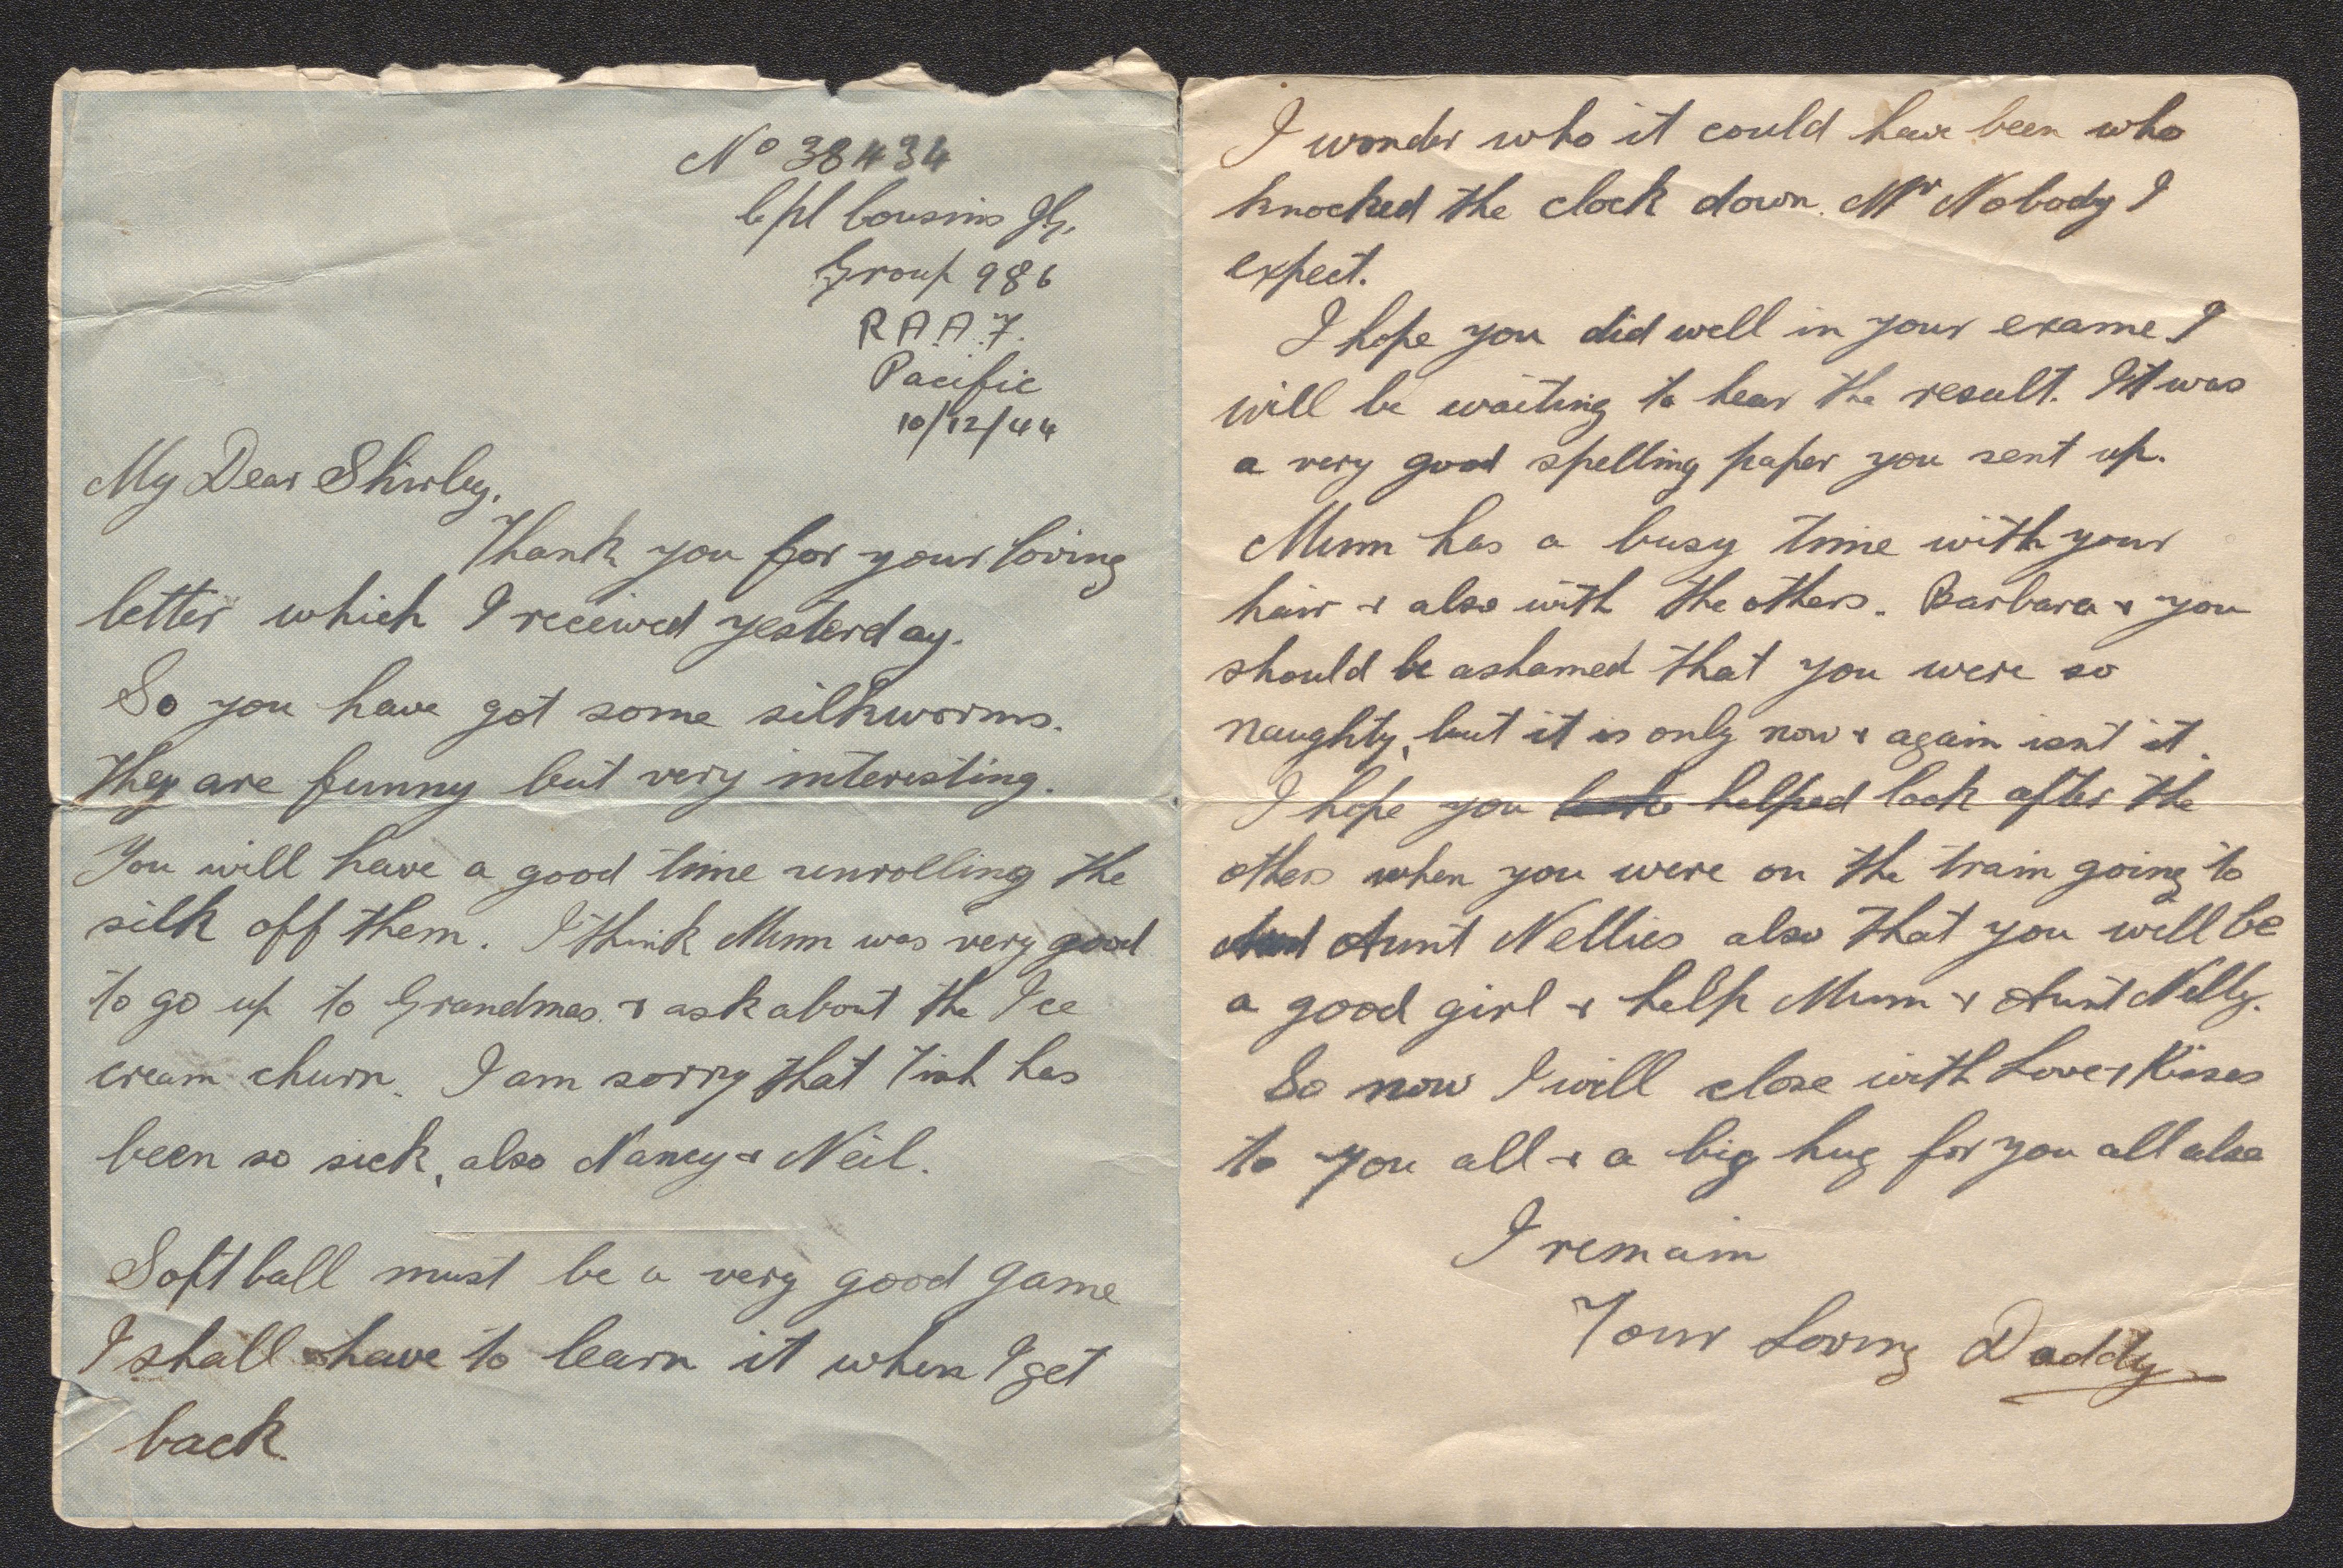 No 38434
Cpl Cousins
Group 986
R.A.A.F.
Pacific
10/12/44
My Dear Shirley,
Thank you for your loving
letter which I received yesterday.
So you have got some silkworms.
They are funny but very interesting.
You will have a good time unrolling the
silk off them. I think Mum was very good
to go up to Grandmas & ask about the Ice
cream churn. I am sorry that Tish has
been so sick, also Nancy & Neil.
Softball must be a very good game
I shall have to learn it when I get
back.
I wonder who it could have been who
knocked the clock down. Mr Nobody I
expect.
I hope you did well in your exams I
will be waiting to hear the result. It was
a very good spelling paper you sent up.
Mum has a busy time with your
hair & also with the others. Barbara & you
should be ashamed that you were so
naughty, but it is only now & again isnt it.
I hope you helped look after the
others when you were on the train going to
Aunt Nellies also that you will be
a good girl & help Mum & Aunt Nelly.
So now I will close with Love & Kisses
to you all & a big hug for you all also
I remain
Your Loving Daddy